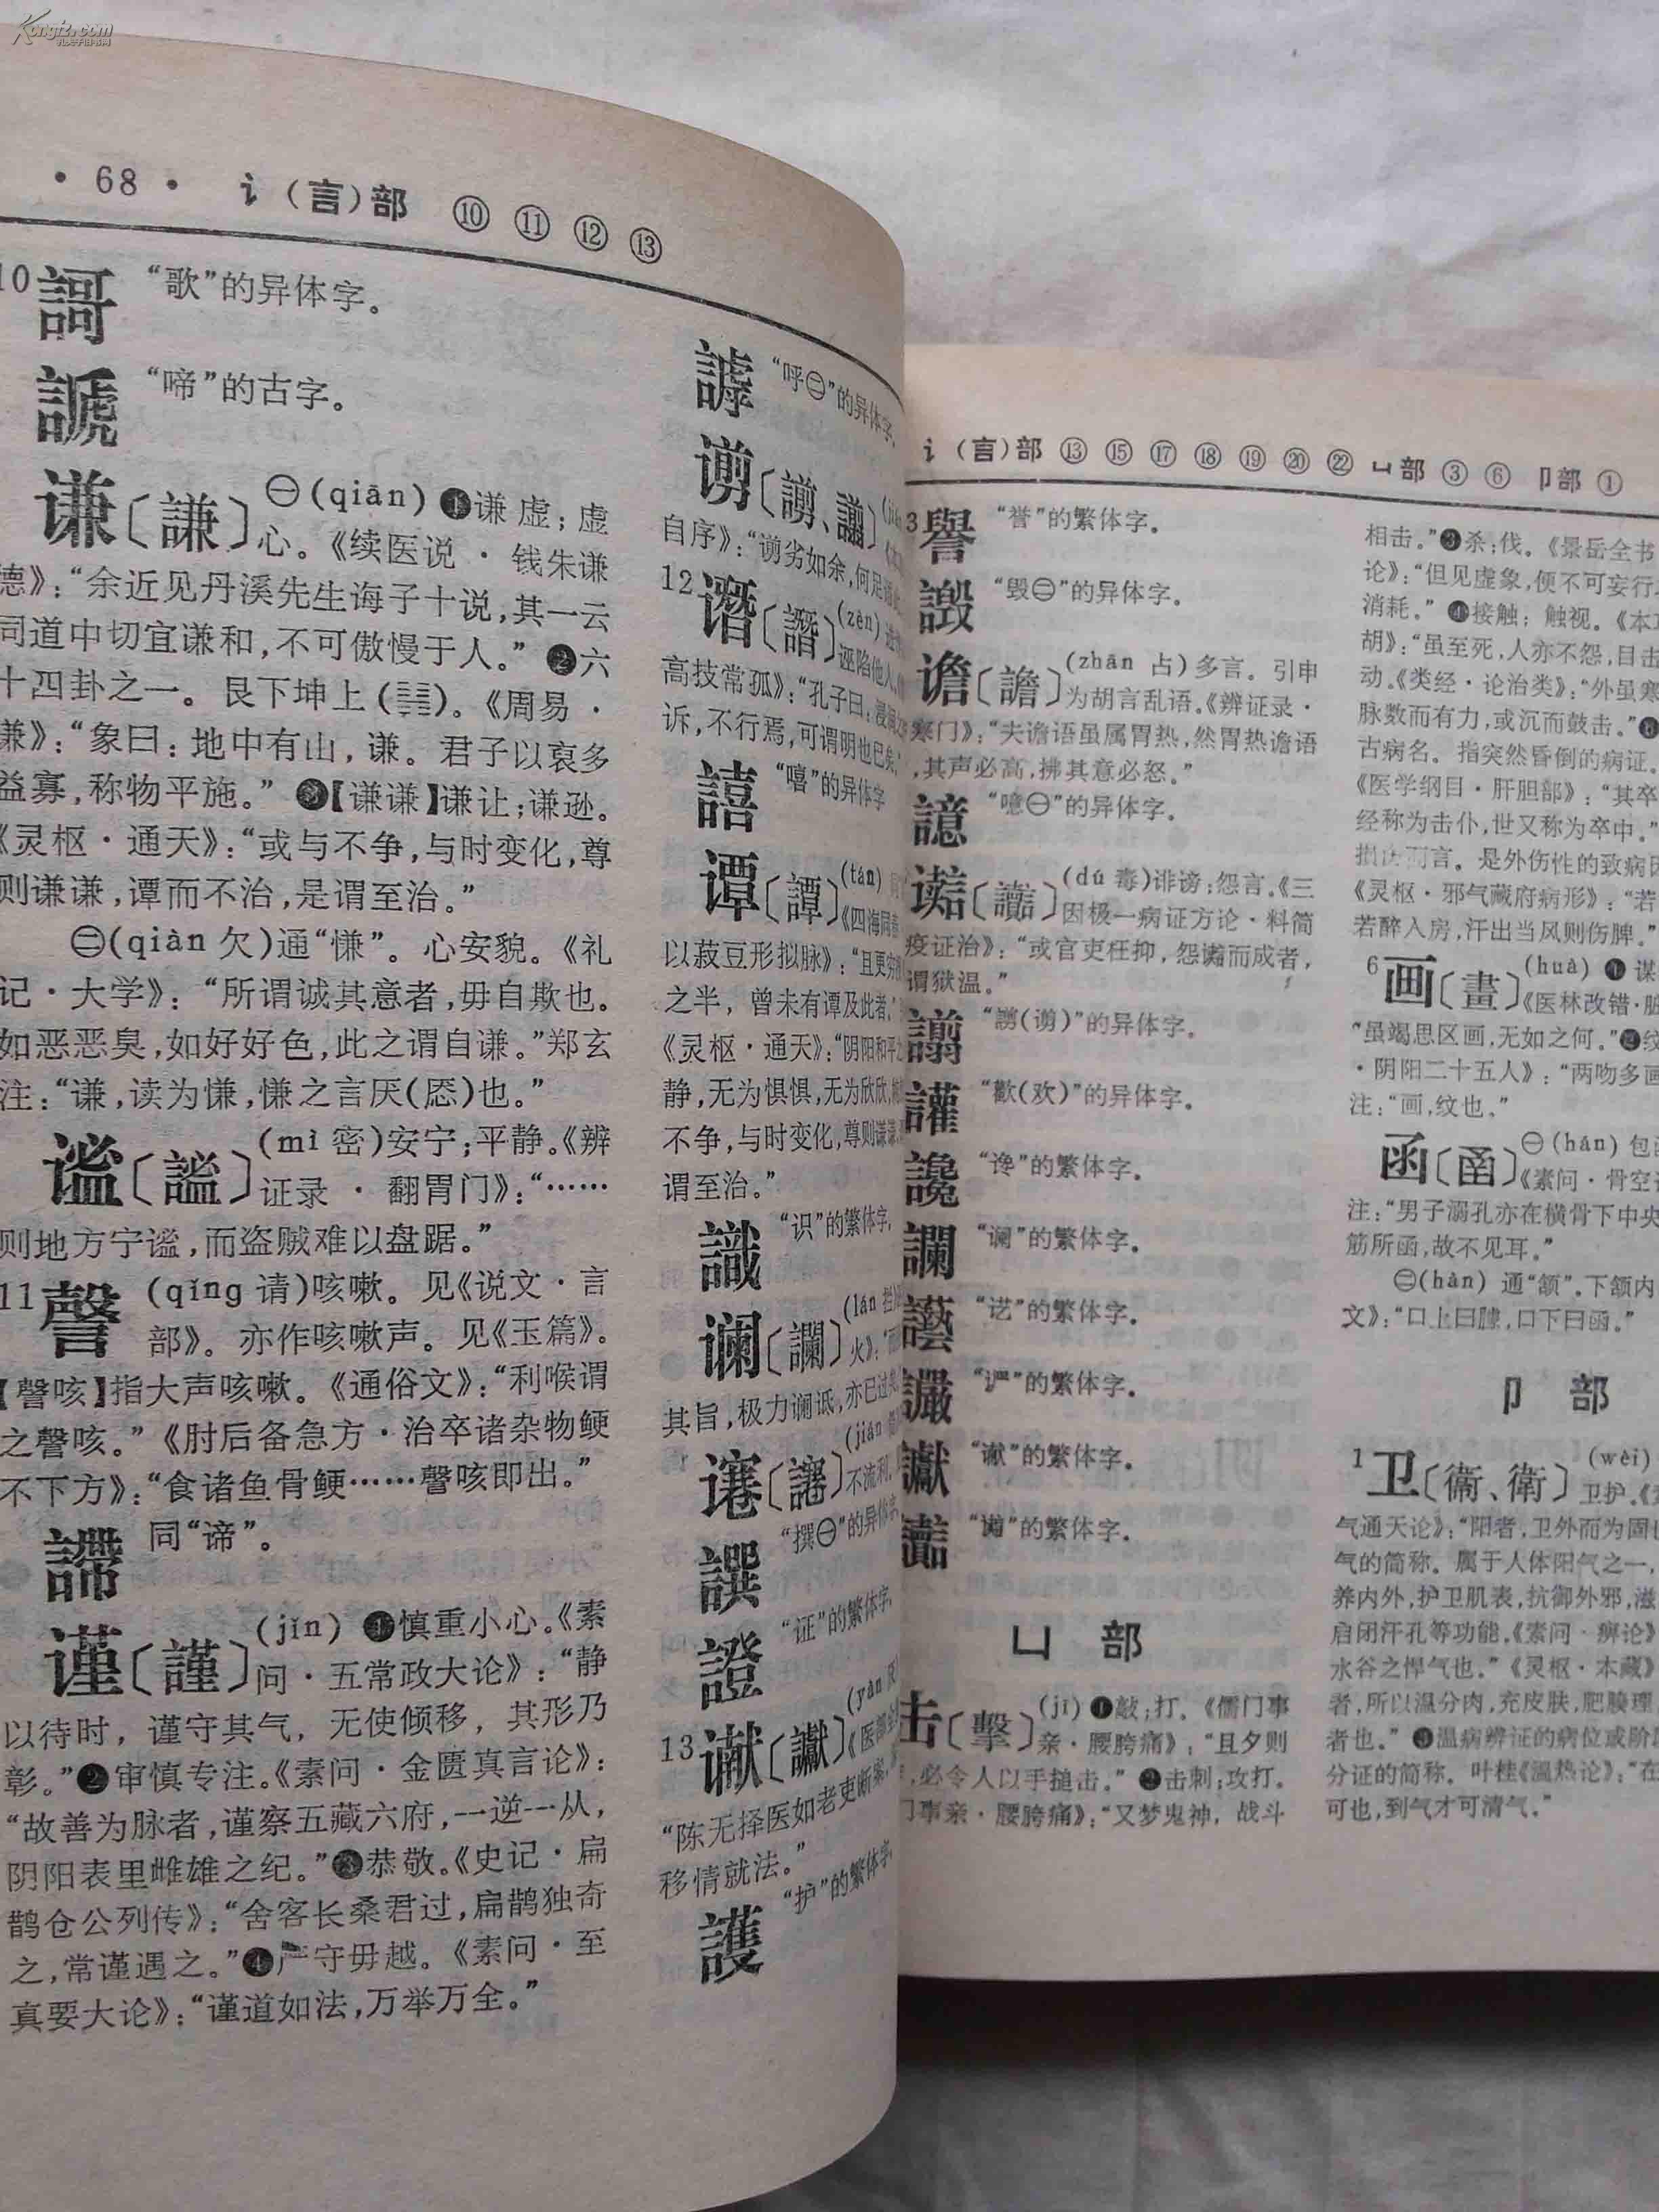 Kongfz.com
孔夫子旧书网
· 68 · 讠(言)部 ⑩ ⑪ ⑫ ⑬
10 謌 “歌”的异体字。
謕 “啼”的古字。
谦〔謙〕 ㊀(qiān) ❶谦虚；虚
心。《续医说 · 钱朱谦
德》：“余近见丹溪先生诲子十说，其一云
同道中切宜谦和，不可傲慢于人。” ❷六
十四卦之一。艮下坤上(䷎)。《周易 ·
谦》：“象曰：地中有山，谦。君子以裒多
益寡，称物平施。” ❸【谦谦】谦让；谦逊。
《灵枢 · 通天》：“或与不争，与时变化，尊
则谦谦，谭而不治，是谓至治。”
㊁(qiàn 欠)通“慊”。心安貌。《礼
记 · 大学》：“所谓诚其意者，毋自欺也。
如恶恶臭，如好好色，此之谓自谦。”郑玄
注：“谦，读为慊，慊之言厌(恹)也。”
谧〔謐〕 (mì 密)安宁；平静。《辨
证录 · 翻胃门》：“……
则地方宁谧，而盗贼难以盘踞。”
11 謦 (qǐng 请)咳嗽。见《说文 · 言
部》。亦作咳嗽声。见《玉篇》。
【謦咳】指大声咳嗽。《通俗文》：“利喉谓
之謦咳。”《肘后备急方 · 治卒诸杂物鲠
不下方》：“食诸鱼骨鲠……謦咳即出。”
謘 同“谛”。
谨〔謹〕 (jǐn) ❶慎重小心。《素
问 · 五常政大论》：“静
以待时，谨守其气，无使倾移，其形乃
彰。”❷审慎专注。《素问 · 金匮真言论》：
“故善为脉者，谨察五藏六府，一逆一从，
阴阳表里雌雄之纪。”❸恭敬。《史记 · 扁
鹊仓公列传》：“舍客长桑君过，扁鹊独奇
之，常谨遇之。”❹严守毋越。《素问 · 至
真要大论》：“谨道如法，万举万全。”
謼 “呼㊁”的异体字。
谫〔謭、譾〕
自序》：“谫劣如余，何足
12 谮〔譖〕 (zèn)
诬陷他人。
高技常孤》：“孔子曰：浸润之
诉，不行焉，可谓明也已矣。”
譆 “嘻”的异体字
谭〔譚〕 (tán) 同
《四海同春
以菽豆形拟脉》：“且更穷
之半，曾未有谭及此者。”
《灵枢 · 通天》：“阴阳和平之
静，无为惧惧，无为欣欣，
不争，与时变化，尊则谦谦，
谓至治。”
識 “识”的繁体字。
谰〔讕〕 (lán 拦)
火》：
其旨，极力谰诋，亦已过
謇〔
(jiǎn
不流利。
譔 “撰㊀”的异体字。
證 “证”的繁体字。
13 谳〔讞〕 (yàn
《医部全
“陈无择医如老吏断案，
移情就法。”
護 “护”的繁体字。
讠(言)部 ⑬ ⑮ ⑰ ⑱ ⑲ ⑳ ㉒ 凵部 ③ ⑥ 卩部 ①
3 譽 “誉”的繁体字。
譭 “毁㊀”的异体字。
谵〔譫〕 (zhān 占)多言。引申
为胡言乱语。《辨证录 ·
寒门》：“夫谵语虽属胃热，然胃热谵语
，其声必高，拂其意必怒。”
譩 “噫㊀”的异体字。
〔讟〕 (dú 毒)诽谤；怨言。《三
因极一病证方论 · 料简
疫证治》：“或官吏枉抑，怨讟而成者，
谓狱温。”
譾 “謭(谫)”的异体字。
讙 “歡(欢)”的异体字。
讒 “谗”的繁体字。
讕 “谰”的繁体字。
讛 “讠艺”的繁体字。
讝 “讠严”的繁体字。
讞 “谳”的繁体字。
讟 的繁体字。
凵 部
击〔擊〕 (jī) ❶敲；打。《儒门事
亲 · 腰胯痛》：“且夕则
，必令人以手搥击。” ❷击刺；攻打。
门事亲 · 腰胯痛》：“又梦鬼神，战斗
相击。”❸杀；伐。《景岳全书
论》：“但见虚象，便不可妄行
消耗。” ❹接触；触视。《本
胡》：“虽至死，人亦不怨，目击
动。《类经 · 论治类》：“外虽寒
脉数而有力，或沉而鼓击。”
古病名。指突然昏倒的病证。
《医学纲目 · 肝胆部》：“其卒
经称为击仆，世又称为卒中。”
损伤而言。是外伤性的致病因
《灵枢 · 邪气藏府病形》：“若
若醉入房，汗出当风则伤脾。”
6 画〔畫〕 (huà) ❶谋
《医林改错 · 脏
“虽竭思区画，无如之何。”❷纹
· 阴阳二十五人》：“两吻多画
注：“画，纹也。”
函〔圅〕 ㊀(hán) 包
《素问 · 骨空
注：“男子溺孔亦在横骨下中央
筋所函，故不见耳。”
㊁(hàn) 通“颔”。下颔内
文》：“口上曰臄，口下曰函。”
卩 部
1 卫〔衞、衛〕 (wèi)
卫护。《
气通天论》：“阳者，卫外而为固也
气的简称。属于人体阳气之一，
养内外，护卫肌表，抗御外邪，滋
启闭汗孔等功能。《素问 · 痹论》
水谷之悍气也。”《灵枢 · 本藏》
者，所以温分肉，充皮肤，肥腠理
者也。” ❸温病辨证的病位或阶段
分证的简称。叶桂《温热论》：“在
可也，到气才可清气。”